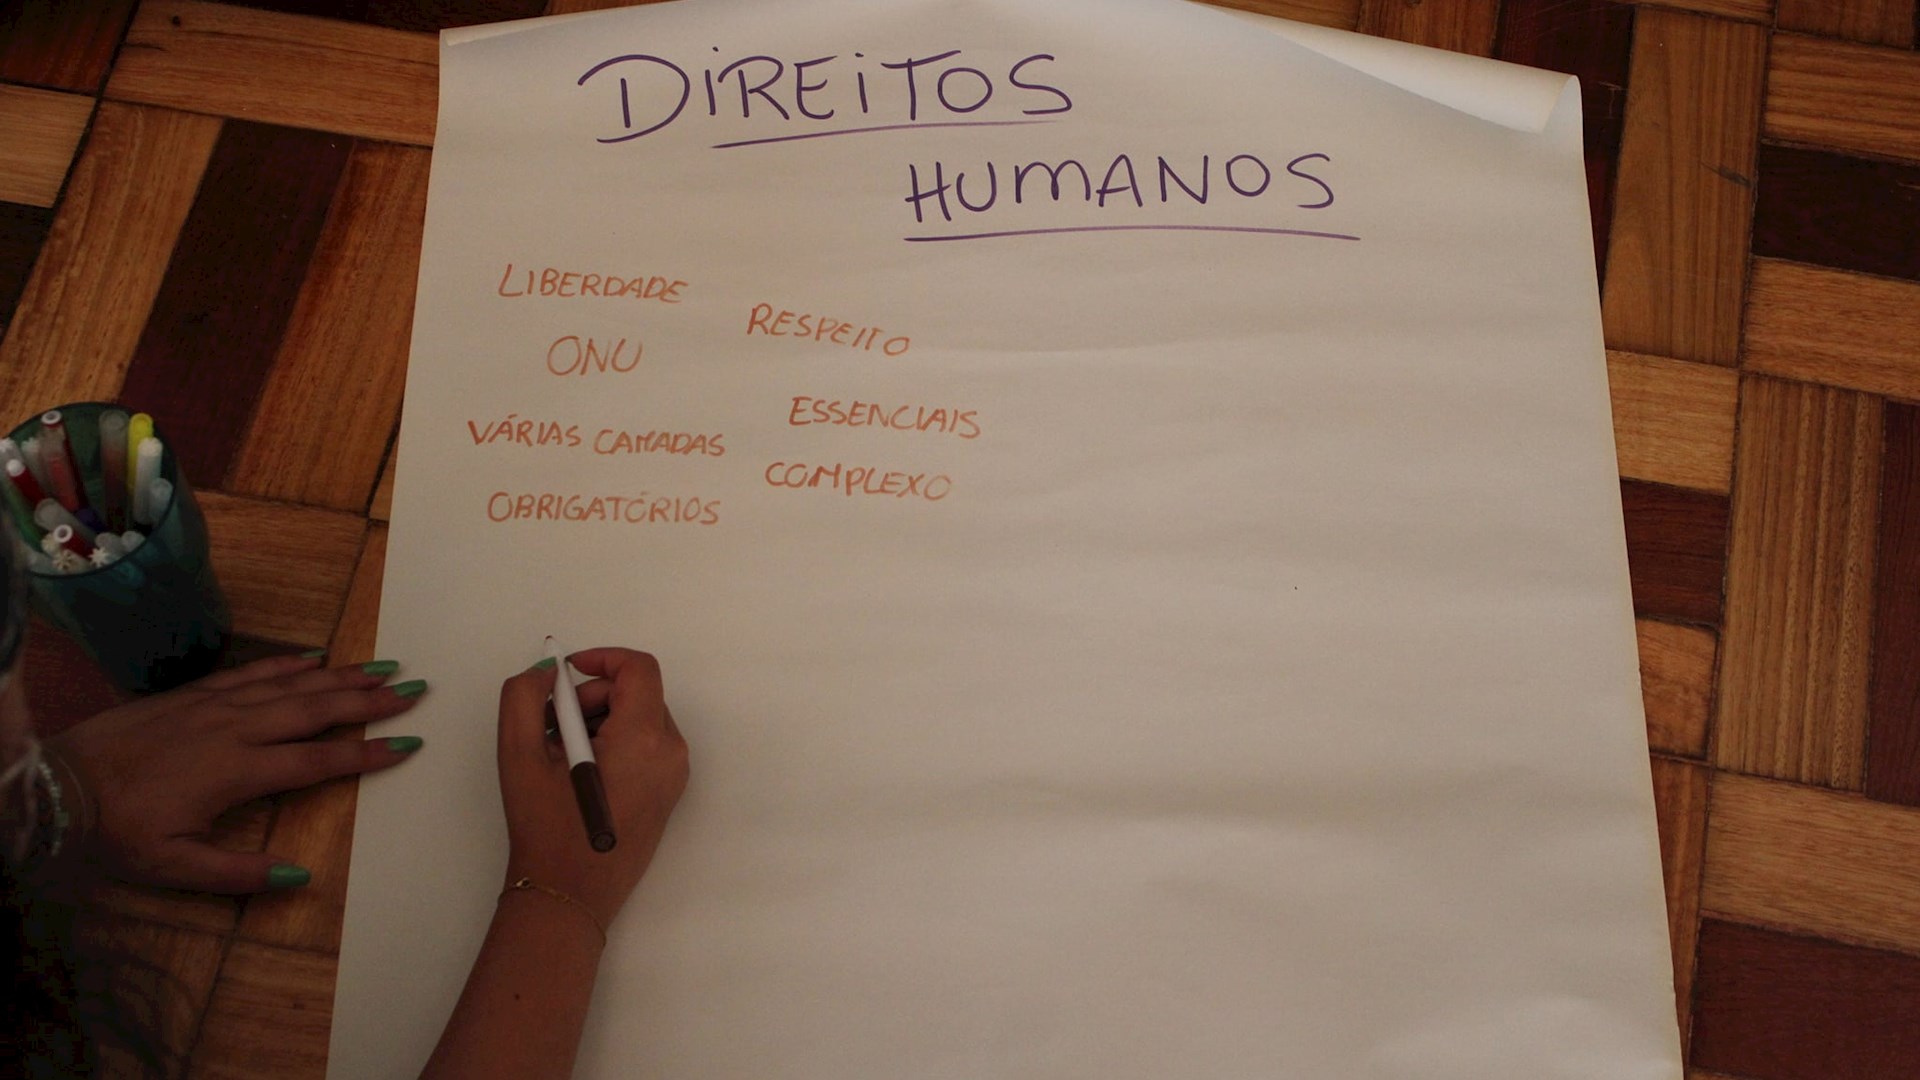 DIREITOS
HUMANOS
LIBERDADE
RESPEITO
ONU
ESSENCIAIS
VÁRIAS CAMADAS
COMPLEXO
OBRIGATÓRIOS